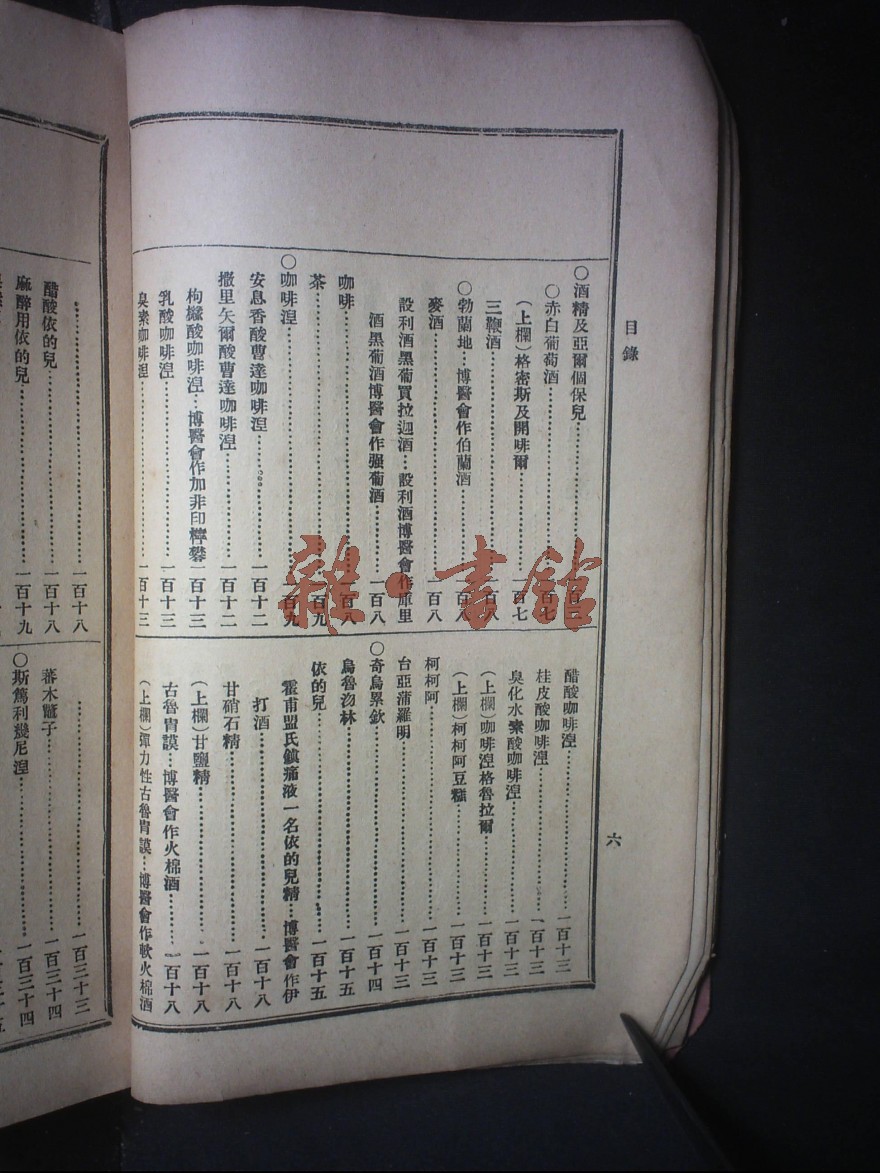 目錄
六
○酒精及亞爾個保兒
○赤白葡萄酒
(上欄)格密斯及開啡爾……一百七
三鞭酒……一百八
○勃蘭地…博醫會作伯蘭酒……一百八
麥酒……一百八
設利酒黑葡買拉迦酒…設利酒博醫會作庫里
酒黑葡酒博醫會作强葡酒……一百八
咖啡……一百八
茶……一百九
○咖啡涅……一百九
安息香酸曹達咖啡涅……一百十二
撒里矢爾酸曹達咖啡涅……一百十二
枸櫞酸咖啡涅…博醫會作加非印檸礬一百十三
乳酸咖啡涅……一百十三
臭素咖啡涅……一百十三
醋酸咖啡涅……一百十三
桂皮酸咖啡涅……一百十三
臭化水素酸咖啡涅……一百十三
(上欄)咖啡涅格魯拉爾……一百十三
(上欄)柯柯阿豆糕……一百十三
柯柯阿……一百十三
台亞蒲羅明……一百十三
○奇烏累欽……一百十四
烏魯沕林……一百十五
依的兒……一百十五
霍甫盟氏鎮痛液一名依的兒精…博醫會作伊
打酒……一百十八
甘硝石精……一百十八
(上欄)甘鹽精……一百十八
古魯胄謨…博醫會作火棉酒……一百十八
(上欄)彈力性古魯胄謨…博醫會作軟火棉酒
……一百十八
醋酸依的兒……一百十八
麻醉用依的兒……一百十九
……一百三十三
蕃木虌子……一百三十四
○斯篤利幾尼涅……一百三十四
雜·書館